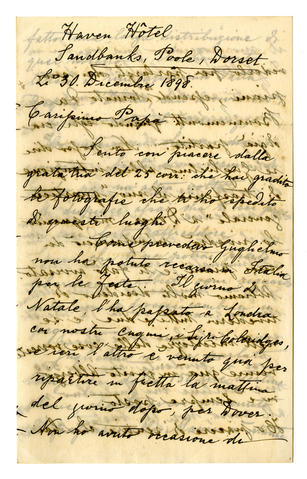 Haven Hôtel
Sandbanks, Poole, Dorset
Li 30 Dicembre 1898
Carissimo Papà
Sento con piacere dalla
grata tua del 25 corr. che hai gradito
le fotografie che ti ho spedito
di questi luoghi.
Come prevedevi Guglielmo
non ha potuto recarsi in Italia
per le feste. Il giorno di
Natale, l'ha passato a Londra
coi nostri cugini,
e ieri l'altro è venuto qua per
ripartire in fretta la mattina
del giorno dopo, per Dover.
Non ho avuto occasione di